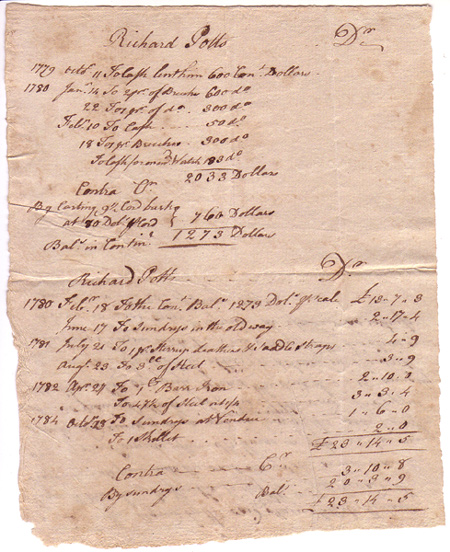 Richard Potts Dr
1779 Octr 11 To Cash lent him 600 Cont Dollars
1780 Jany 14 To 2 pr. of Breeches 600 do
22 To 1 pr. of do 300 do
Feby 10 To Cash 50 do
18 To 1 pr Breeches 300 do
To Cash for mend Watch 183 do
2033 Dollars
Contra Cr
By Carting Cord bark
at 80 Dolr Cord } 760 Dollars
Bale in Contin 1273 Dollars
Richard Potts Dr
1780 Feby 18 To the Cont Bale 1273 Dolr scale £13-7-3
June 17 To Sundrys in the old way 2-17-4
1781 July 21 To 1 pr Stirrup Leathers & Saddle Straps 4-9
Augt 23 To 3 lb of Steel 3-9
1782 Apr 27 To 1 Ct Barr Iron 2-10-0
To of Steel 3-3-4
1784 Octr 28 To Sundrys at Vendue 1-6-0
To 1 Skillet 2-0
£23-14-5
Contra Cr 3-10-8
By Sundrys Bale 20-3-9
£23-14-5